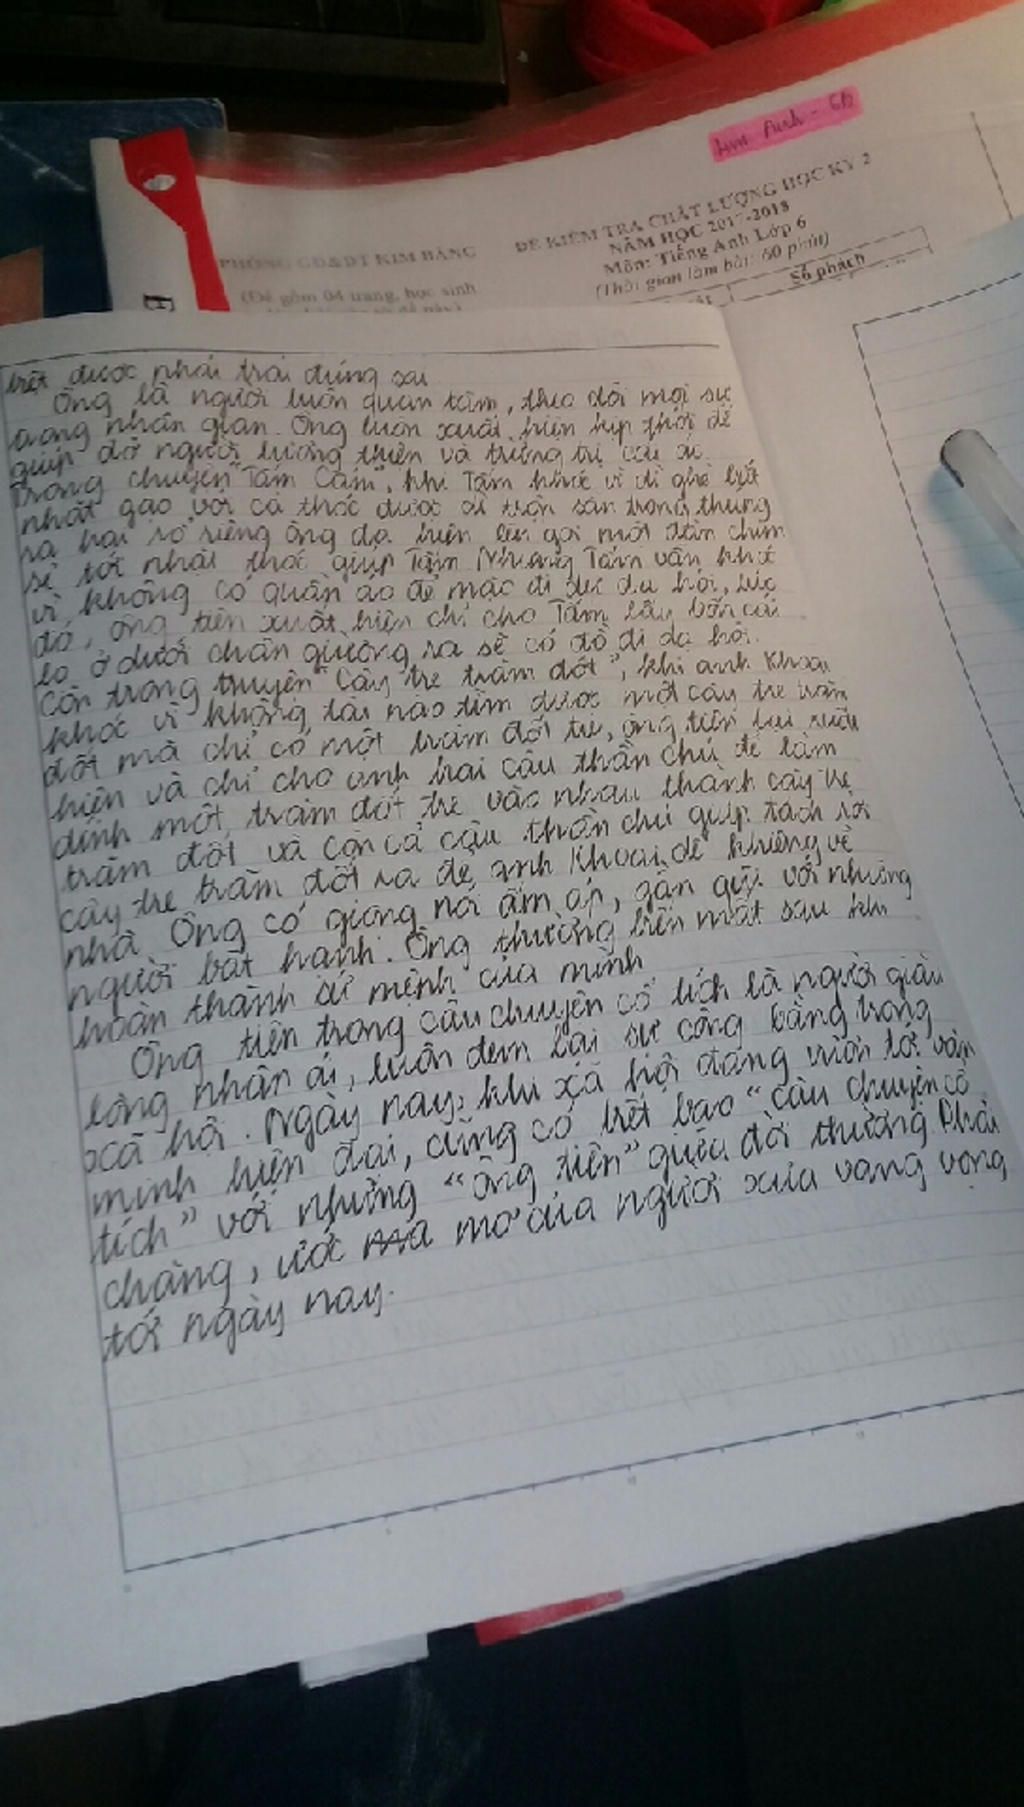 Lan Anh - 6B
PHÒNG GD&ĐT KIM BẢNG
ĐỀ KIỂM TRA CHẤT LƯỢNG HỌC KỲ 2
NĂM HỌC 2017-2018
Môn: Tiếng Anh Lớp 6
(Thời gian làm bài: 60 phút)
(Đề gồm 04 trang, học sinh
Số phách
biệt được phải trái đúng sai
Ông là người luôn quan tâm, theo dõi mọi sự
trong nhân gian. Ông luôn xuất hiện kịp thời để
giúp đỡ người lương thiện và trừng trị cái ác.
Trong chuyện "Tấm Cám", khi Tấm khóc vì dì ghẻ bắt
nhặt gạo với cả thóc được dì trộn sẵn trong thúng
ra hai rổ riêng ông đã hiện lên gọi một đàn chim
sẻ tới nhặt thóc giúp Tấm. Nhưng Tấm vẫn khóc
vì không có quần áo để mặc đi dự dạ hội, lúc
đó, ông tiên xuất hiện chỉ cho Tấm lấy bốn cái
lọ ở dưới chân giường ra sẽ có đồ đi dạ hội.
Còn trong truyện "Cây tre trăm đốt", khi anh Khoai
khóc vì không tài nào tìm được một cây tre trăm
đốt mà chỉ có một trăm đốt tre, ông tiên lại xuất
hiện và chỉ cho anh hai câu thần chú để làm
dính một trăm đốt tre vào nhau thành cây tre
trăm đốt và còn cả câu thần chú giúp tách rời
cây tre trăm đốt ra để anh Khoai dễ khiêng về
nhà. Ông có giọng nói ấm áp, gần gũi với những
người bất hạnh. Ông thường biến mất sau khi
hoàn thành sứ mệnh của mình
Ông tiên trong câu chuyện cổ tích là người giàu
lòng nhân ái, luôn đem lại sự công bằng trong
xã hội. Ngày nay, khi xã hội đang vươn tới văn
minh hiện đại, cũng có biết bao "câu chuyện cổ
tích" với những "ông tiên" giữa đời thường. Phải
chăng, ước mơ của người xưa vang vọng
tới ngày nay.